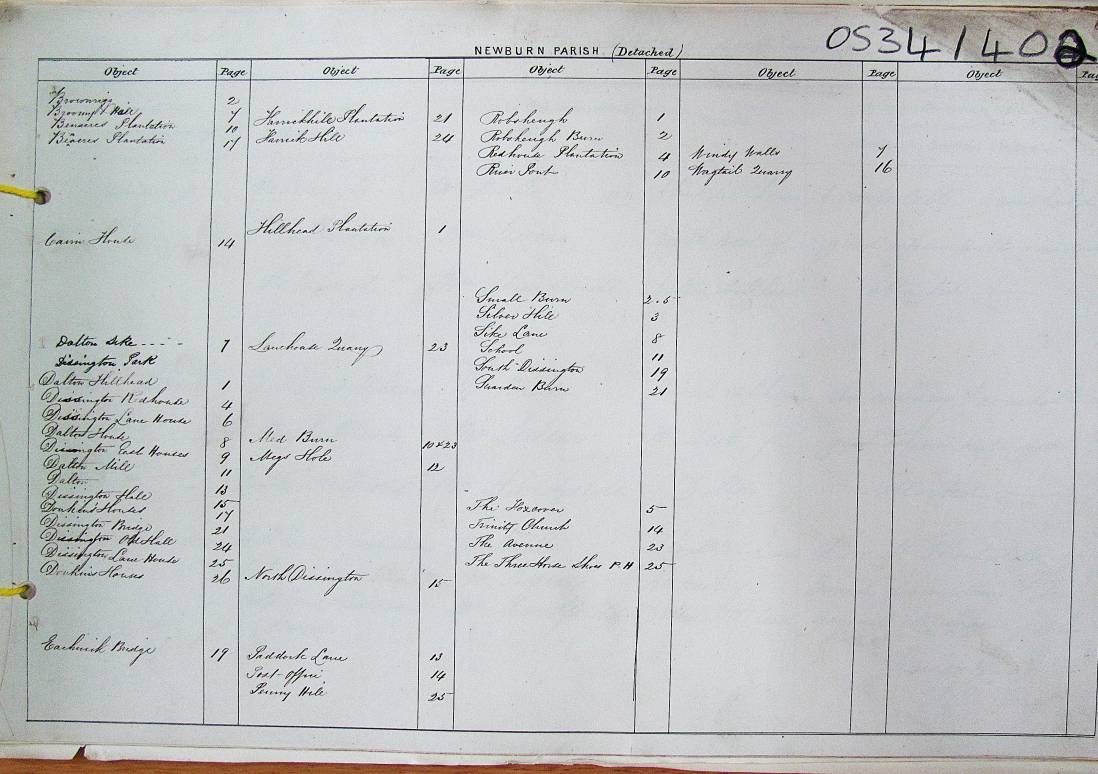 NEWBURN PARISH (Detached)
OS34/402
Object Page Object Page Object Page Object Page Object
Brownrigs 2
Broomy Hall 7
Benacres Plantation 10
Plantation 17
Cairn House 14
Dalton Sike 7
Dissington Park
Dalton Hillhead 1
Dissington Redhouse 4
Dissington Lane House 6
Dalton House 8
Dissington East Houses 9
Dalton Mill 11
Dalton 13
Dissington Hall 15
Donkins Houses 17
Dissington Bridge 21
Dissington Old Hall 24
Dissington Lane House 25
Donkins Houses 26
Eachwick Bridge 19
Harnickhill Plantation 21
Harnick Hill 24
Hillhead Plantation 1
Lanehouse Quarry 23
Med Burn 10 & 23
Megs Hole 12
North Dissington 15
Paddock Lane 13
Post-Office 14
Penny Hill 25
Robsheugh 1
Robsheugh Burn 2
Redhouse Plantation 4
River Pont 10
Small Burn 2.5
Silver Hill 3
Sike Lane 8
School 11
South Dissington 19
Burn 21
The Foxcover 5
Trinity Church 14
The Avenue 23
The Three Horse Shoes P.H 25
Windy Walls 7
Wagtail Quarry 16